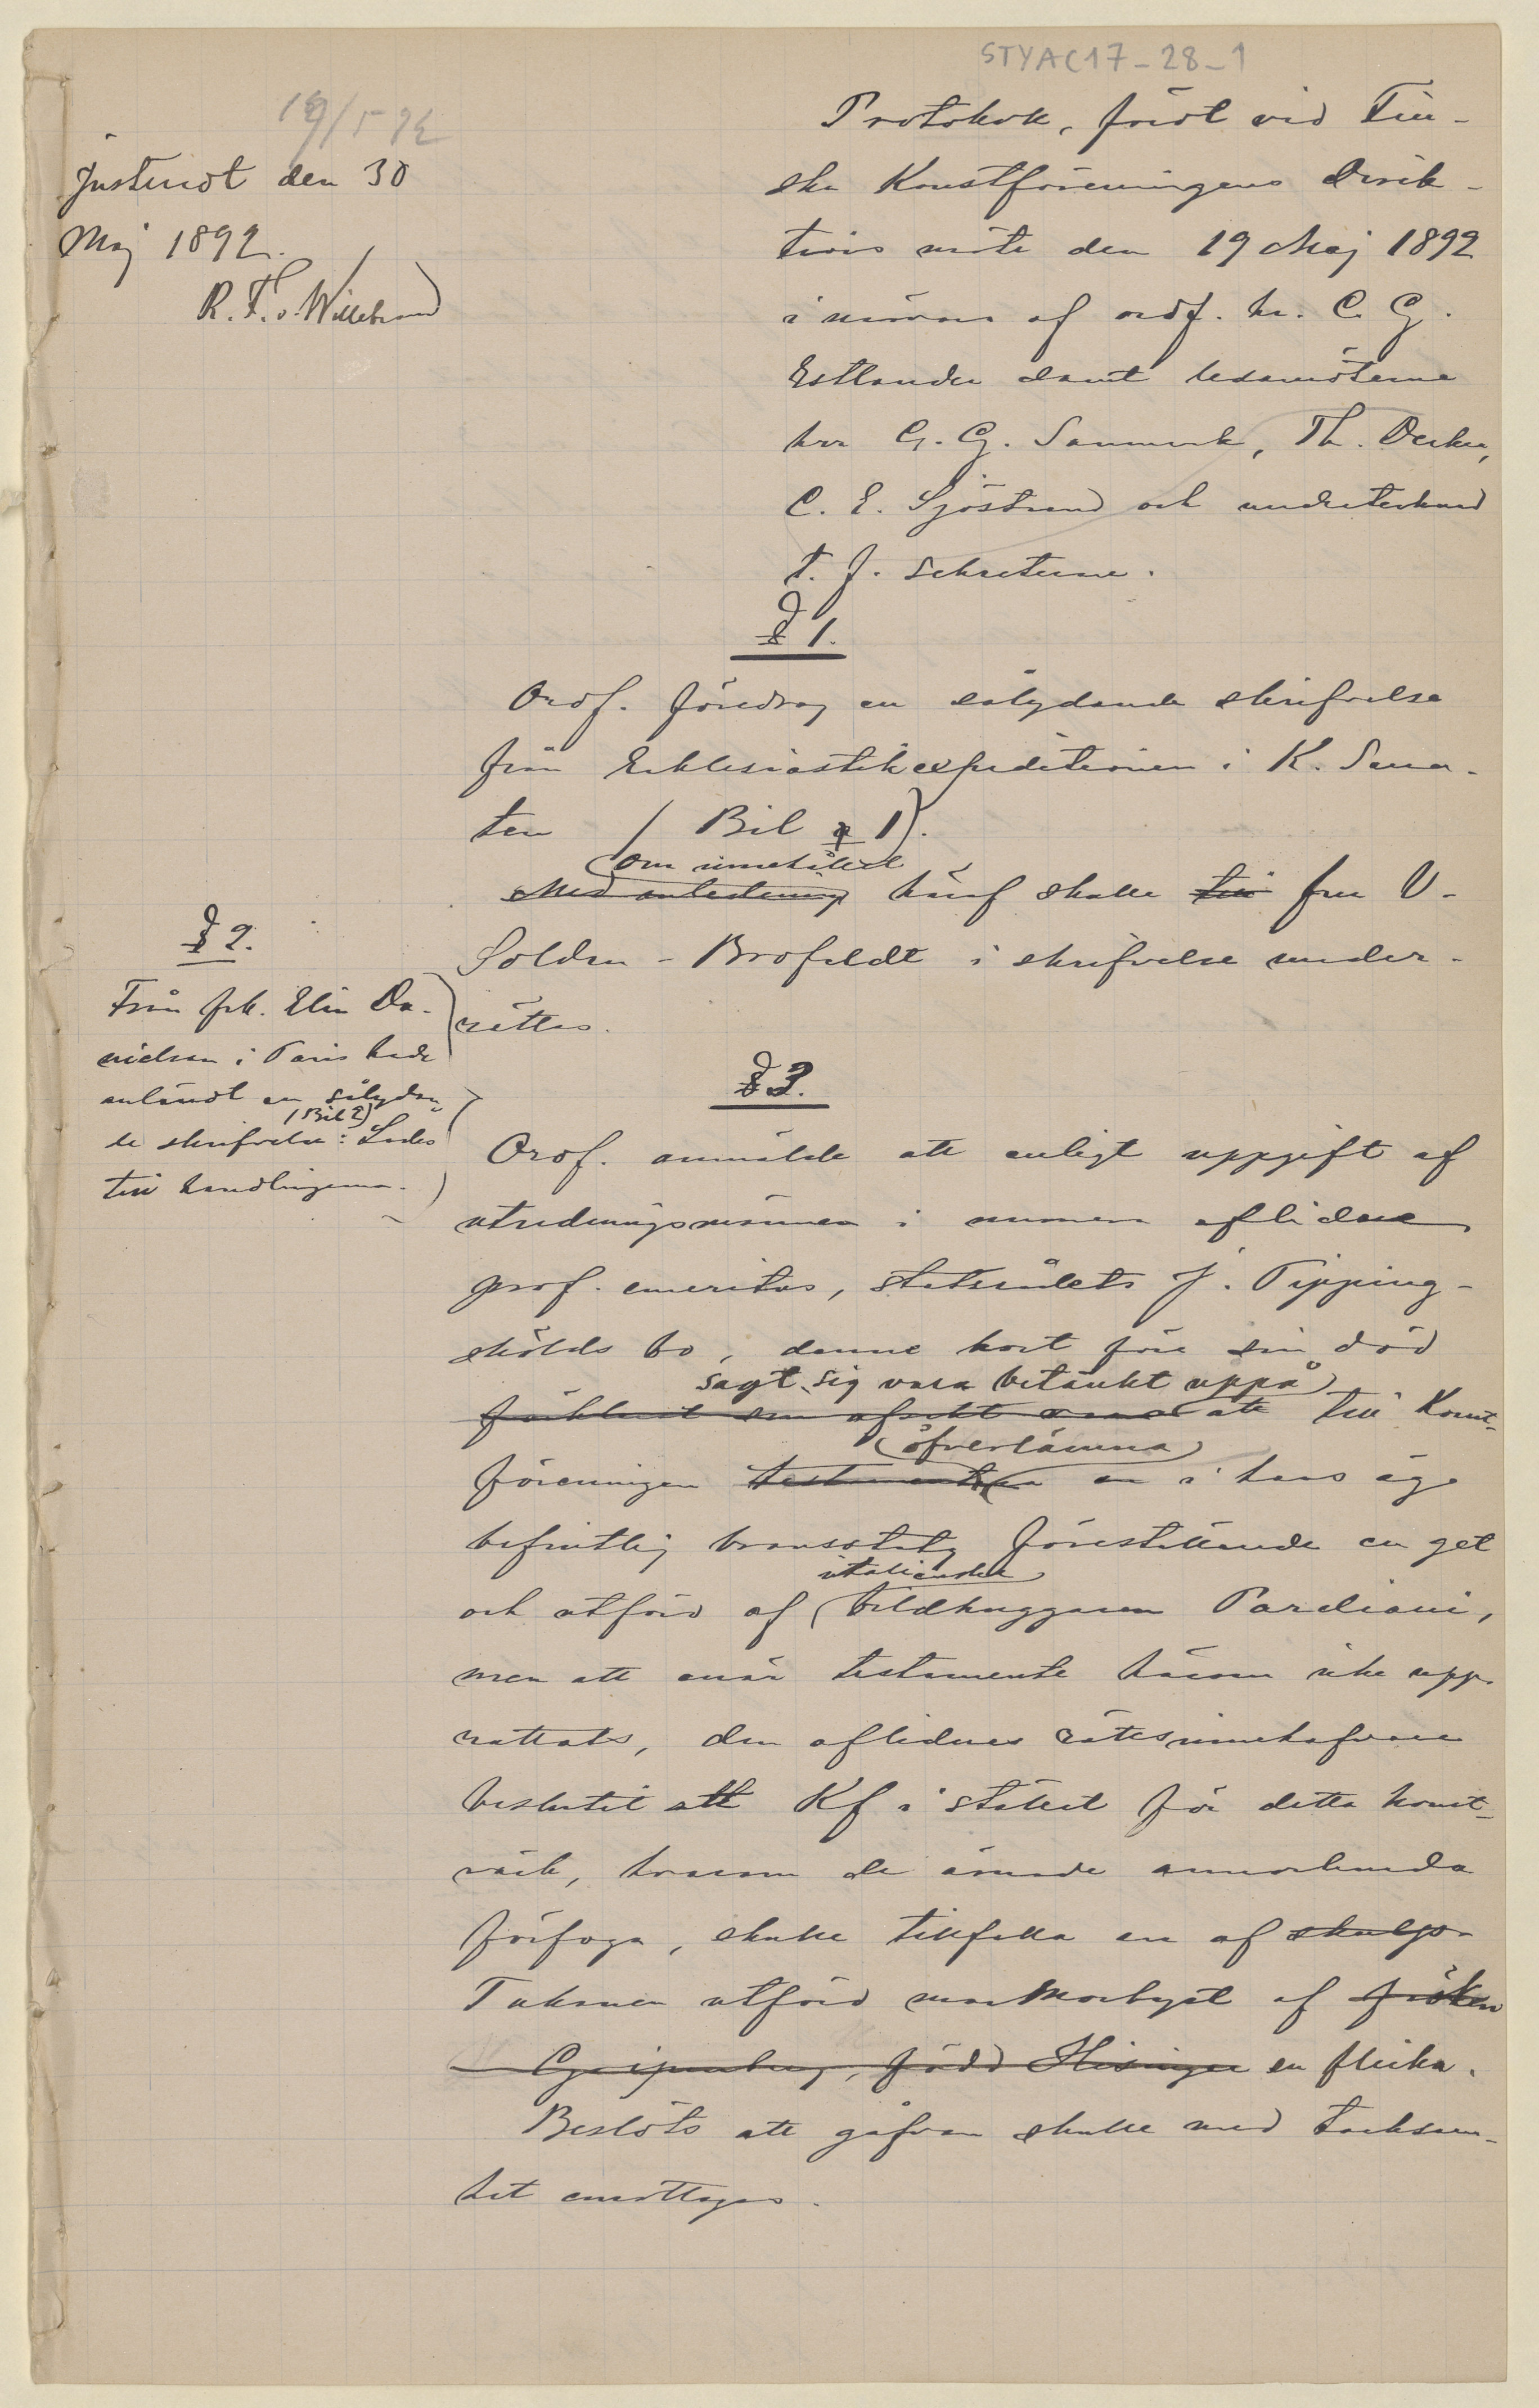 STYAC17-28-1
19/5 92
Justeradt den 30
Maj 1892.
R. F. v. Willebrand
Protokoll, fördt vid Fin-
ska Konstföreningens Direk-
tions möte den 19 Maj 1892
i närvaro af ordf. hr. C. G.
Estlander samt ledamöterna
hrr G. G. Sannmark, Th. Decker,
C. E. Sjöstrand och undertecknad
t. f. sekreterare.
§ 1.
Ordf. föredrog en sålydande skrifvelse
från Ecklesiastikexpeditionen i K. Sena-
ten (Bil 1).
om innehållet
Med anledning häraf skulle till fru V.
Soldan-Brofeldt i skrifvelse under-
rättas.
§ 2.
Från frk. Elin Da-
nielson i Paris hade
anländt en sålydan-
(Bil 2)
de skrifvelse: Lades
till handlingarna.
§ 3.
Ordf. anmälde att enligt uppgift af
utredningsmännen i numera aflidne
prof. emeritus, statsrådets J. Pipping-
skölds bo, denne kort före sin död
sagt sig vara betänkt uppå
förklarat sin afsikt vara att till Konst-
öfverlämna
föreningen testamentera en i hans ägo
befintlig bronsstaty föreställande en get
italienska
och utförd af bildhuggaren Pardiani,
men att enär testamente härom icke upp-
rättats, den aflidnes rättsinnehafvare
beslutit att Kf i stället för detta konst-
värk, hvarom de ärnade annorlunda
förfoga, skulle tillfalla en af skulp-
Takanen utförd marmorbyst af fröken
Gripenberg, född Hisinger en flicka.
Beslöts att gåfvan skulle med tacksam-
het emottagas.